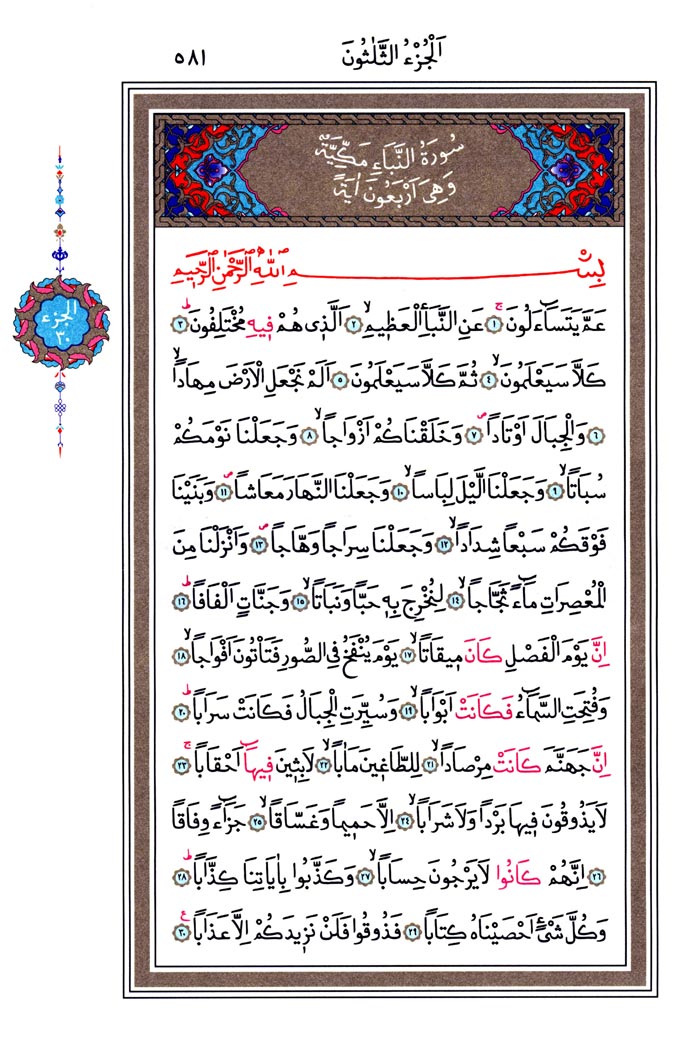 اَلْجُزْءُ الثَّلٰثُونَ ٥٨١
سُورَةُ النَّبَاءِ مَكِّيَّةٌ
وَهِىَ اَرْبَعُونَ اٰيَةً
الجزء
٣٠
بِسْــــــــــمِ اللّٰهِ الرَّحْمٰنِ الرَّحِيمِ
عَمَّ يَتَسَٓاءَلُونَۚ ١ عَنِ النَّبَأِ الْعَظِيمِۙ ٢ اَلَّذِى هُمْ فِيهِ مُخْتَلِفُونَۜ ٣
كَلَّا سَيَعْلَمُونَۙ ٤ ثُمَّ كَلَّا سَيَعْلَمُونَ ٥ اَلَمْ نَجْعَلِ الْاَرْضَ مِهَادًاۙ
٦ وَالْجِبَالَ اَوْتَادًاۖ ٧ وَخَلَقْنَاكُمْ اَزْوَاجًاۙ ٨ وَجَعَلْنَا نَوْمَكُمْ
سُبَاتًاۙ ٩ وَجَعَلْنَا الَّيْلَ لِبَاسًاۙ ١٠ وَجَعَلْنَا النَّهَارَ مَعَاشًاۖ ١١ وَبَنَيْنَا
فَوْقَكُمْ سَبْعًا شِدَادًاۙ ١٢ وَجَعَلْنَا سِرَاجًا وَهَّاجًاۖ ١٣ وَاَنْزَلْنَا مِنَ
الْمُعْصِرَاتِ مَٓاءً ثَجَّاجًاۙ ١٤ لِنُخْرِجَ بِهِ حَبًّا وَنَبَاتًاۙ ١٥ وَجَنَّاتٍ اَلْفَافًاۜ ١٦
اِنَّ يَوْمَ الْفَصْلِ كَانَ مِيقَاتًاۙ ١٧ يَوْمَ يُنْفَخُ فِى الصُّورِ فَتَأْتُونَ اَفْوَاجًاۙ ١٨
وَفُتِحَتِ السَّمَٓاءُ فَكَانَتْ اَبْوَابًاۙ ١٩ وَسُيِّرَتِ الْجِبَالُ فَكَانَتْ سَرَابًاۜ ٢٠
اِنَّ جَهَنَّمَ كَانَتْ مِرْصَادًاۙ ٢١ لِلطَّاغِينَ مَاٰبًاۙ ٢٢ لَابِثِينَ فِيهَٓا اَحْقَابًاۚ ٢٣
لَا يَذُوقُونَ فِيهَا بَرْدًا وَلَا شَرَابًاۙ ٢٤ اِلَّا حَمِيمًا وَغَسَّاقًاۙ ٢٥ جَزَٓاءً وِفَاقًا
٢٦ اِنَّهُمْ كَانُوا لَا يَرْجُونَ حِسَابًاۙ ٢٧ وَكَذَّبُوا بِاٰيَاتِنَا كِذَّابًاۜ ٢٨
وَكُلَّ شَىْءٍ اَحْصَيْنَاهُ كِتَابًاۙ ٢٩ فَذُوقُوا فَلَنْ نَزِيدَكُمْ اِلَّا عَذَابًا ع ٣٠